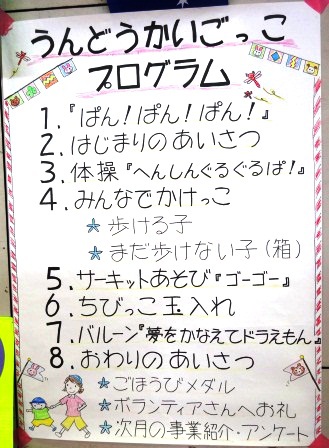 うんどうかいごっこ
プログラム
1.『ぱん！ぱん！ぱん！』
2.はじまりのあいさつ
3.体操『へんしんぐるぐるぱ！』
4.みんなでかけっこ
★歩ける子
★まだ歩けない子(箱)
5.サーキットあそび『ゴーゴー』
6.ちびっこ玉入れ
7.バルーン『夢をかなえてドラえもん』
8.おわりのあいさつ
★ごほうびメダル
★ボランティアさんへお礼
★次月の事業紹介・アンケート